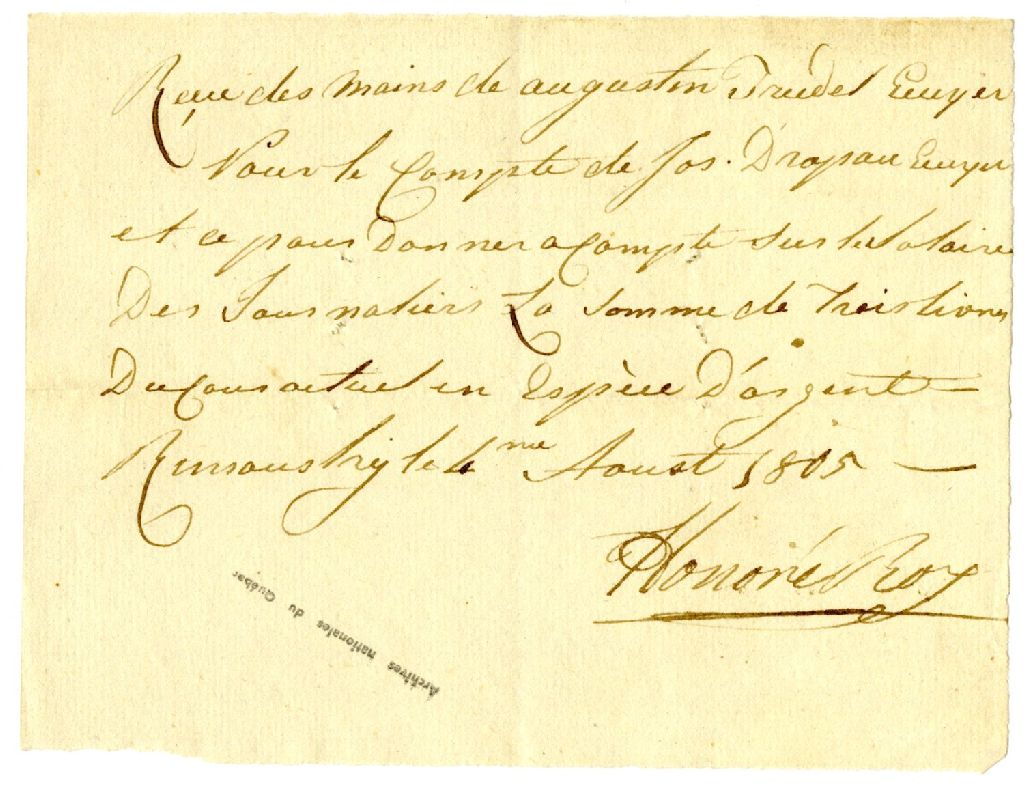 Reçue des mains de augustin Trudel Ecuyer
Pour le Compte de Jos. Drapau Ecuyer
et ce pour Donner a Compte sur le Salaire
Des Journaliers La Somme de Trois livres
Du Cour actuel en Espèce D'argent —
Rimouksy le 4me Aoust 1805 —
Honoré Roy
Archives nationales du Québec